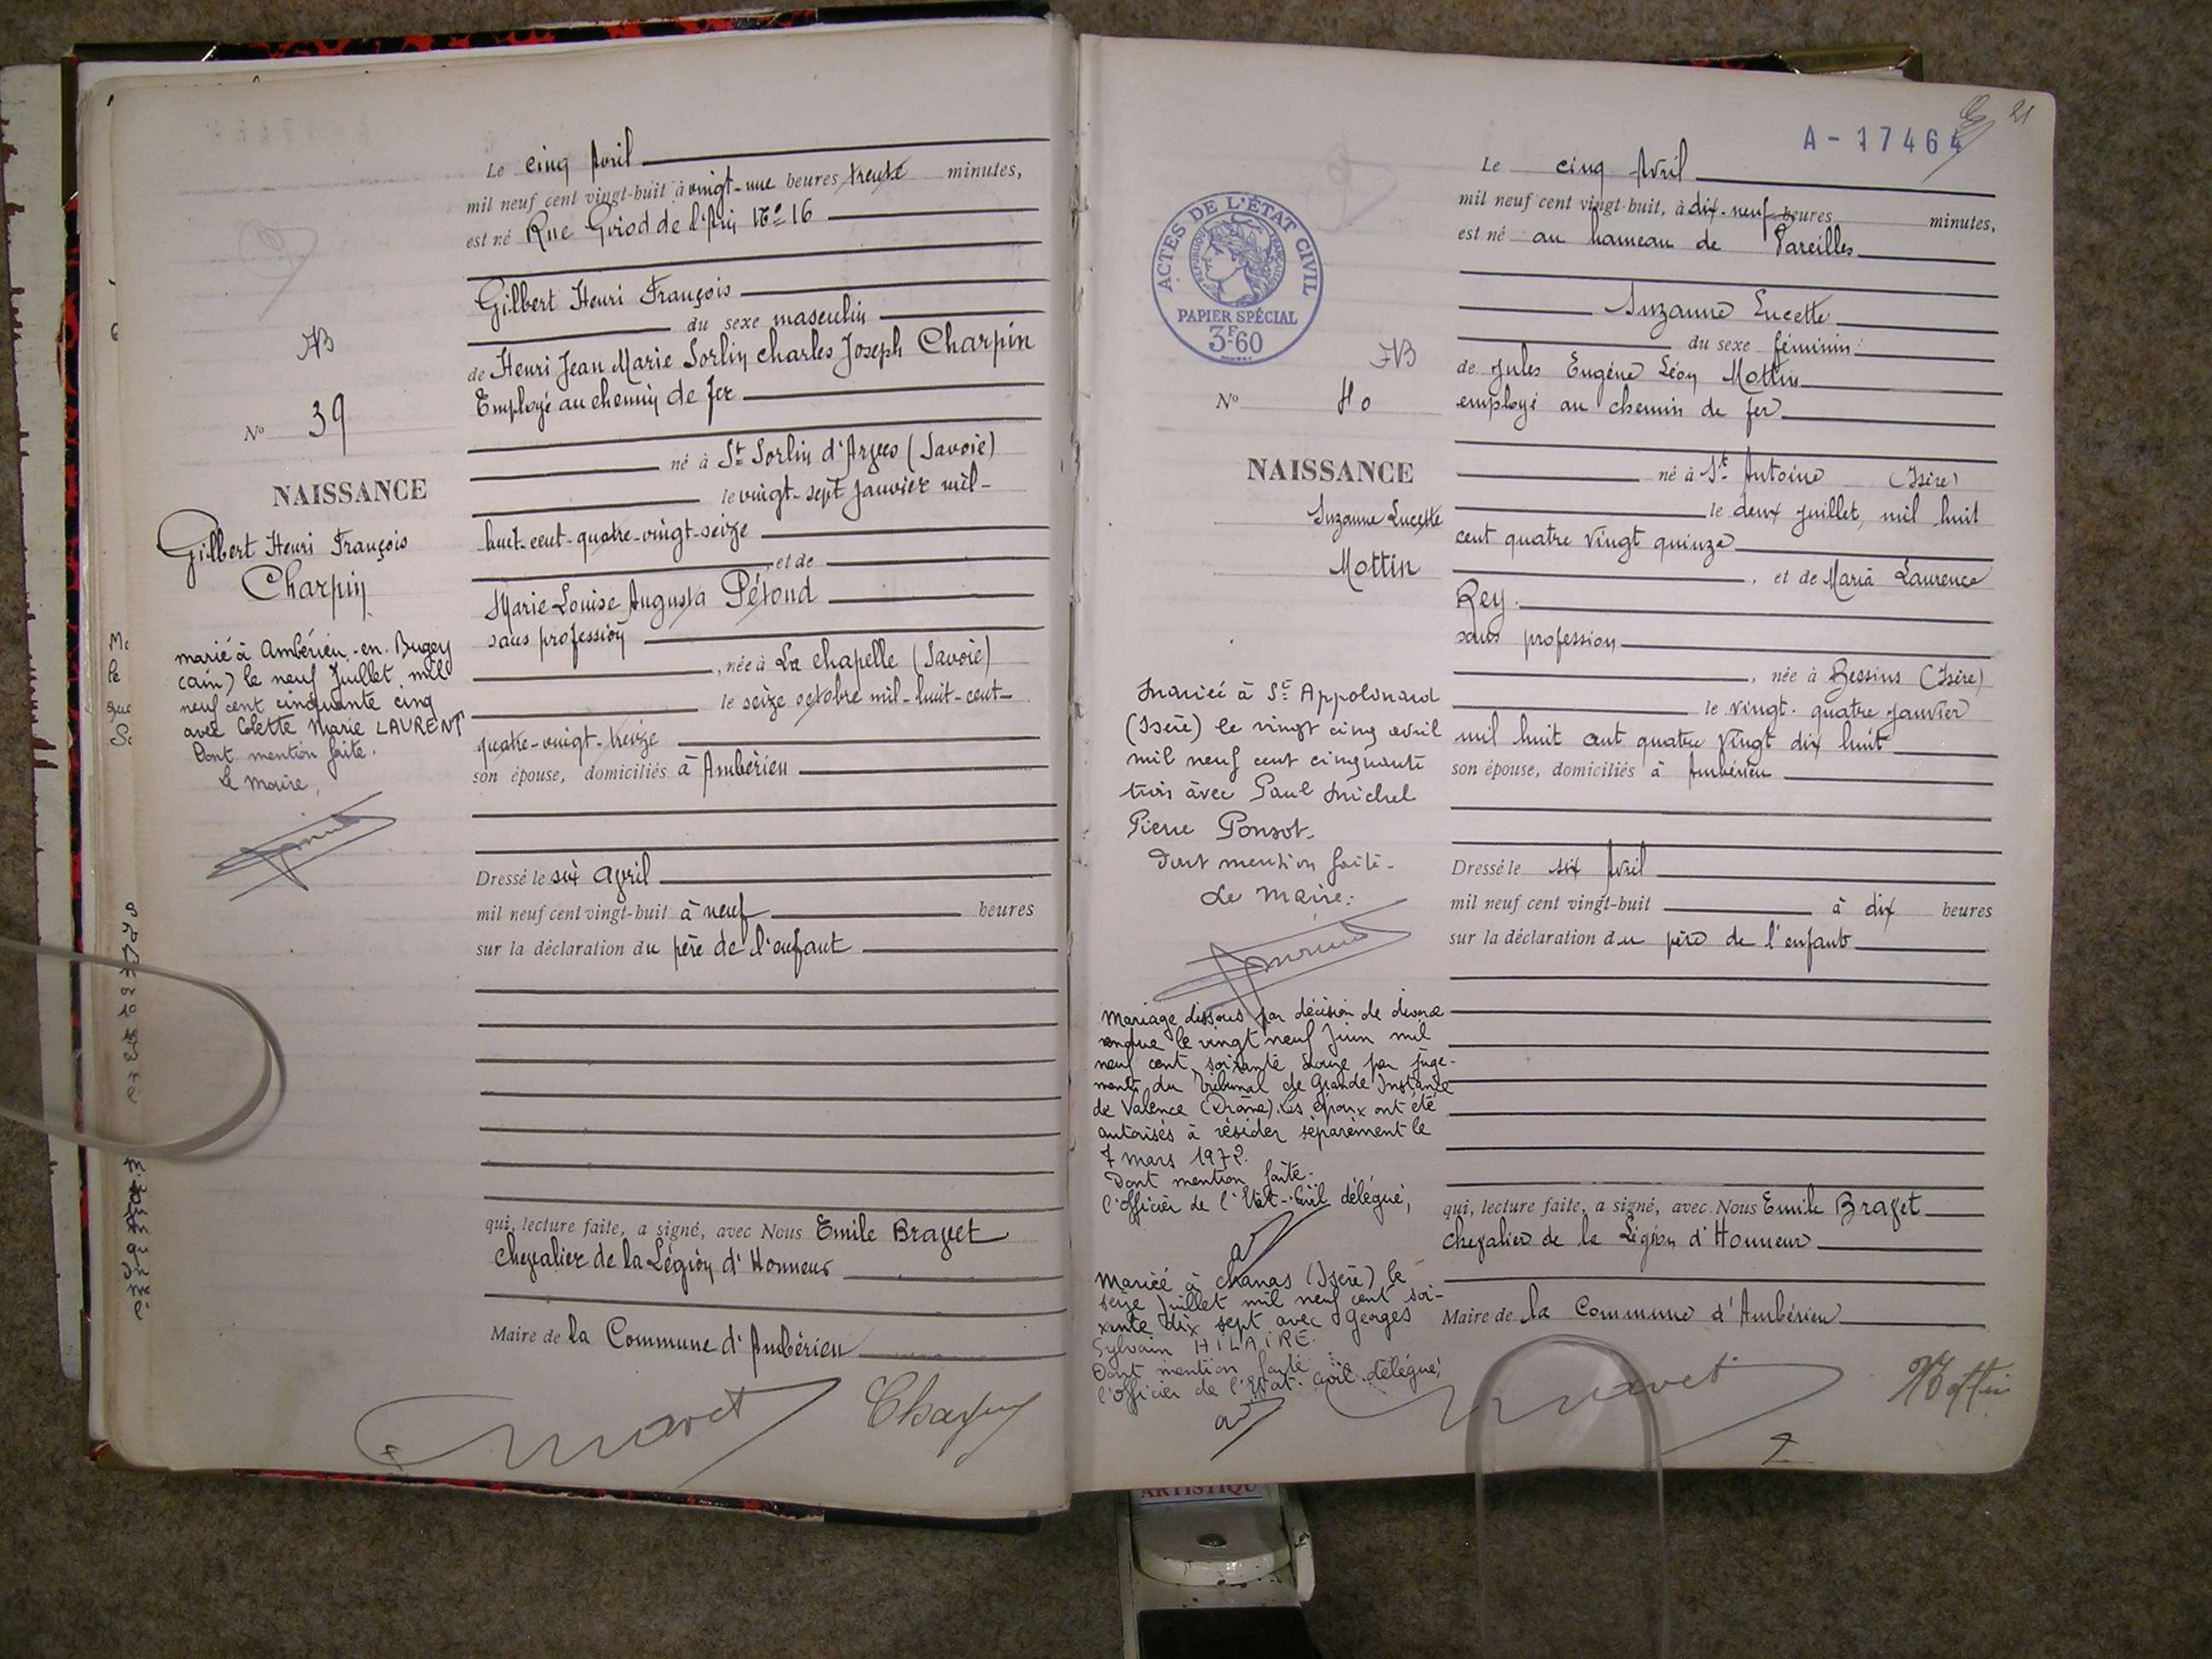 Le cinq Avril
mil neuf cent vingt-huit à vingt-une heures trente minutes,
est né Rue Griod de l'Ain N° 16
Gilbert Henri François
du sexe masculin
de Henri Jean Marie Sorlin Charles Joseph Charpin
Employé au chemin de fer
né à St Sorlin d'Arves (Savoie)
le vingt-sept Janvier mil-
huit-cent-quatre-vingt-seize
et de
Marie Louise Augusta Pétoud
sans profession
, née à La Chapelle (Savoie)
le seize octobre mil-huit-cent-
quatre-vingt-treize
son épouse, domiciliés à Ambérieu
Dressé le six Avril
mil neuf cent vingt-huit à neuf heures
sur la déclaration du père de l'enfant
qui, lecture faite, a signé, avec Nous Emile Bravet
Chevalier de la Légion d'Honneur
Maire de la Commune d'Ambérieu
Bravet Charpin
N° 39
NAISSANCE
Gilbert Henri François
Charpin
marié à Ambérieu-en-Bugey
(ain) le neuf Juillet mil
neuf cent cinquante cinq
avec Colette Marie LAURENT
Dont mention faite.
Le Maire,
21
A-17464
ACTES DE L'ÉTAT CIVIL
RÉPUBLIQUE FRANÇAISE
PAPIER SPÉCIAL
3F60
N° 40
NAISSANCE
Suzanne Lucette
Mottin
mariée à St Appolinard
(Isère) le vingt cinq avril
mil neuf cent cinquante
trois avec Paul Michel
Pierre Ponsot.
Dont mention faite.
Le Maire:
Mariage dissous par décision de divorce
rendue le vingt neuf Juin mil
neuf cent soixante douze par juge-
ment du Tribunal de Grande Instance
de Valence (Drôme). Les époux ont été
autorisés à résider séparément le
7 mars 1972.
Dont mention faite.
l'Officier de l'Etat-Civil délégué,
Mariée à Chanas (Isère) le
seize Juillet mil neuf cent soi-
xante dix sept avec Georges
Sylvain HILAIRE.
Dont mention faite
l'Officier de l'Etat-Civil délégué,
Le cinq Avril
mil neuf cent vingt-huit, à dix-neuf heures minutes,
est né au hameau de Vareilles
Suzanne Lucette
du sexe féminin
de Jules Eugène Léon Mottin
employé au chemin de fer
né à St Antoine (Isère)
le deux juillet, mil huit
cent quatre vingt quinze
, et de Maria Laurence
Rey.
sans profession
, née à Bessins (Isère)
le vingt-quatre janvier
mil huit cent quatre vingt dix huit
son épouse, domiciliés à Ambérieu
Dressé le six Avril
mil neuf cent vingt-huit à dix heures
sur la déclaration du père de l'enfant
qui, lecture faite, a signé, avec Nous Emile Bravet
Chevalier de la Légion d'Honneur
Maire de la Commune d'Ambérieu
Bravet Mottin
ARTISTIQU